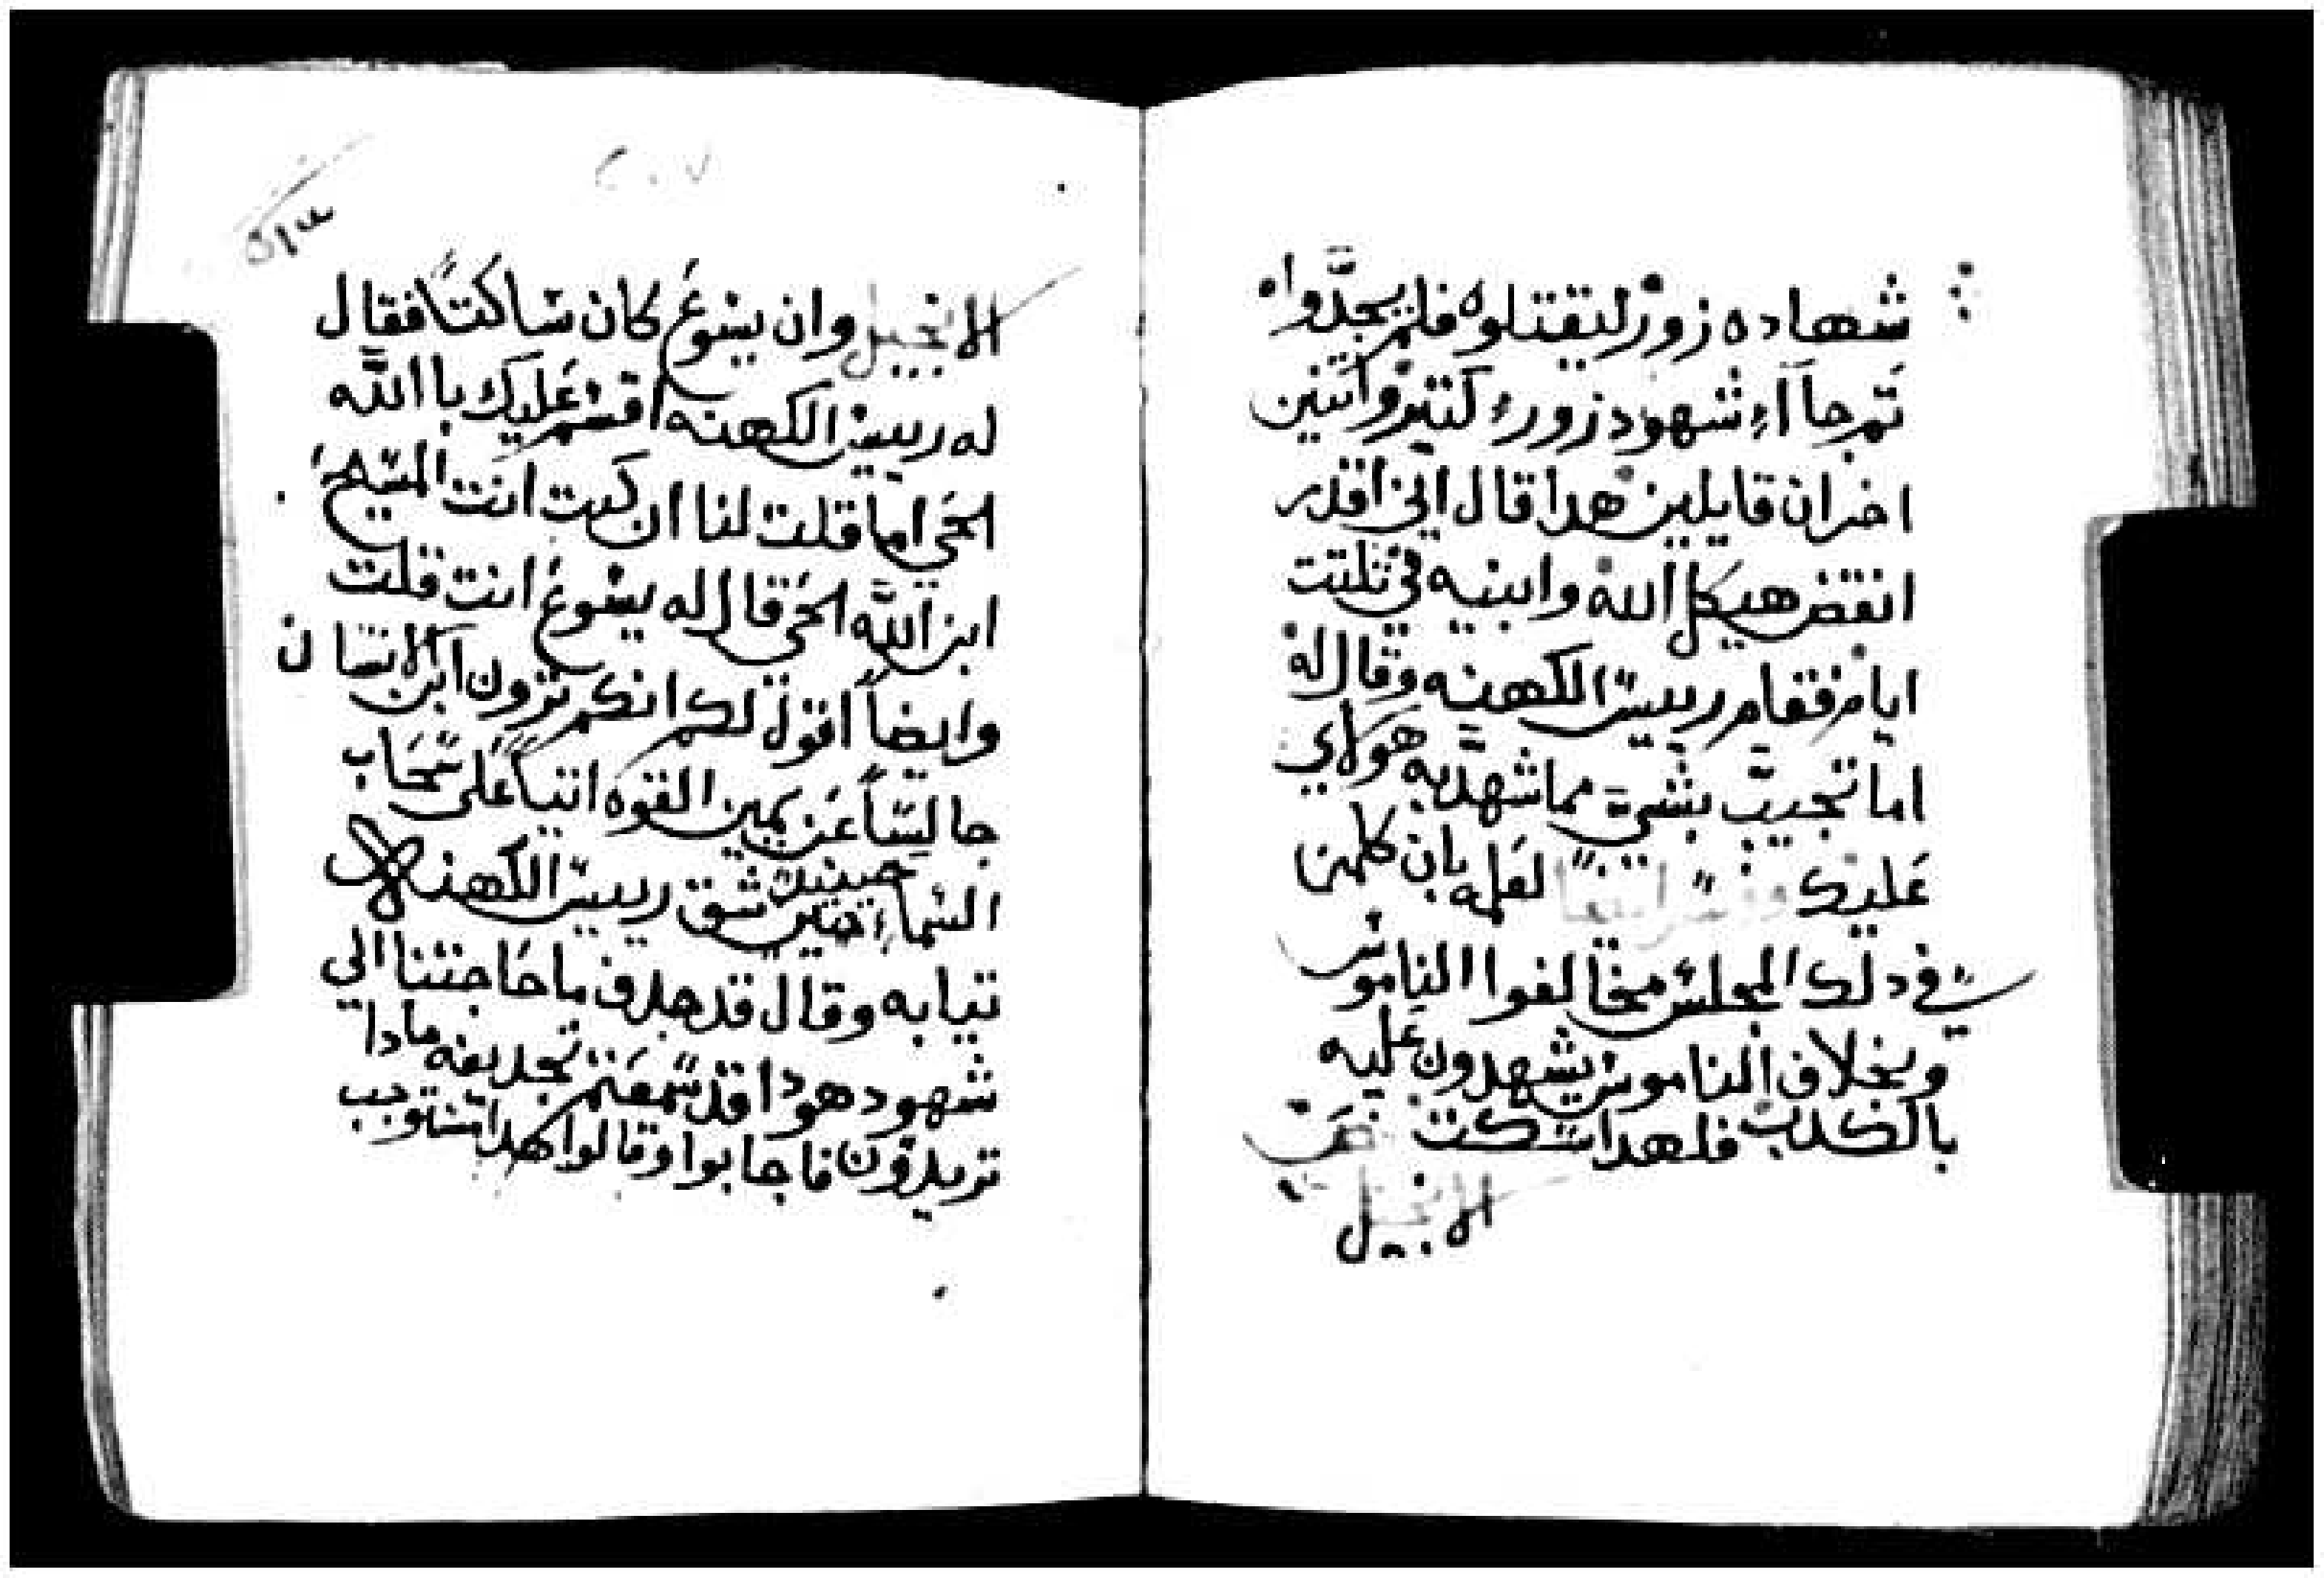 شهاده زور ليقتلوه فلم يجدواه
تم جاآء شهود زور كتير واتنين
اخران قايلين هدا قال اني اقدر
انقض هيكل الله وابنيه في تلتت
ايام فقام رييس الكهنه وقال له
اما تجيب بشي مما شهد به هولاي
عليك لعلمه بان كلمن
في دلك المجلس مخالفوا الناموس
وبخلاف الناموس يشهدون عليه
بالكدب فلهدا سكت نص
الانجيل
٢٠٧
الانجيل وان يسوع كان ساكتاً فقال
له رييس الكهنه اقسم عليك باالله
الحي اما قلت لنا ان كنت انت المسيح
ابن الله الحي قال له يسوع انت قلت
وايضاً اقول لكم انكم ترون ابن الانسان
جالساً عن يمين القوه اتياً على سحاب
السماء حينيد شق رييس الكهنه
تيابه وقال قد جدف ما حاجتنا الي
شهود هودا قد سمعتم تجديفه مادا
تريدون فاجابوا وقالوا كهدا مستوجب